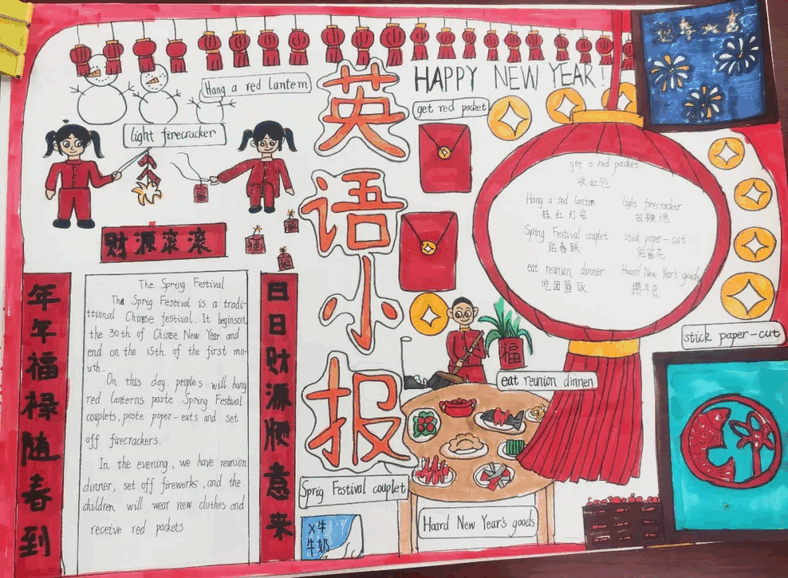 Hang a red lantern
HAPPY NEW YEAR!
get red pocket
light firecracker
英语小报
财源滚滚
年年福禄随春到
日日财源顺意来
The Spring Festival
The Sprig Festival is a tradi-
ttional Chinese festival. It beginson
the 30th of Chinese New Year and
end on the 15th of the first mo-
uth.
On this day, peoples will hang
red lanterns paste Spring Festival
couplets, paste paper-cuts and set
off firecrackers.
In the evening, we have reunion
dinner, set off fireworks, and the
children will wear new clothes and
receive red packets
get a red packet
收红包
Hang a red lantern
挂红灯笼
light firecracker
放鞭炮
Spring Festival couplet
贴春联
stick paper-cut
贴窗花
eat reunion dinner
吃团圆饭
Hoard New Year's goods
stick paper-cut
福
eat reunion dinner
Sprig Festival couplet
Hoard New Year's goods
牛奶